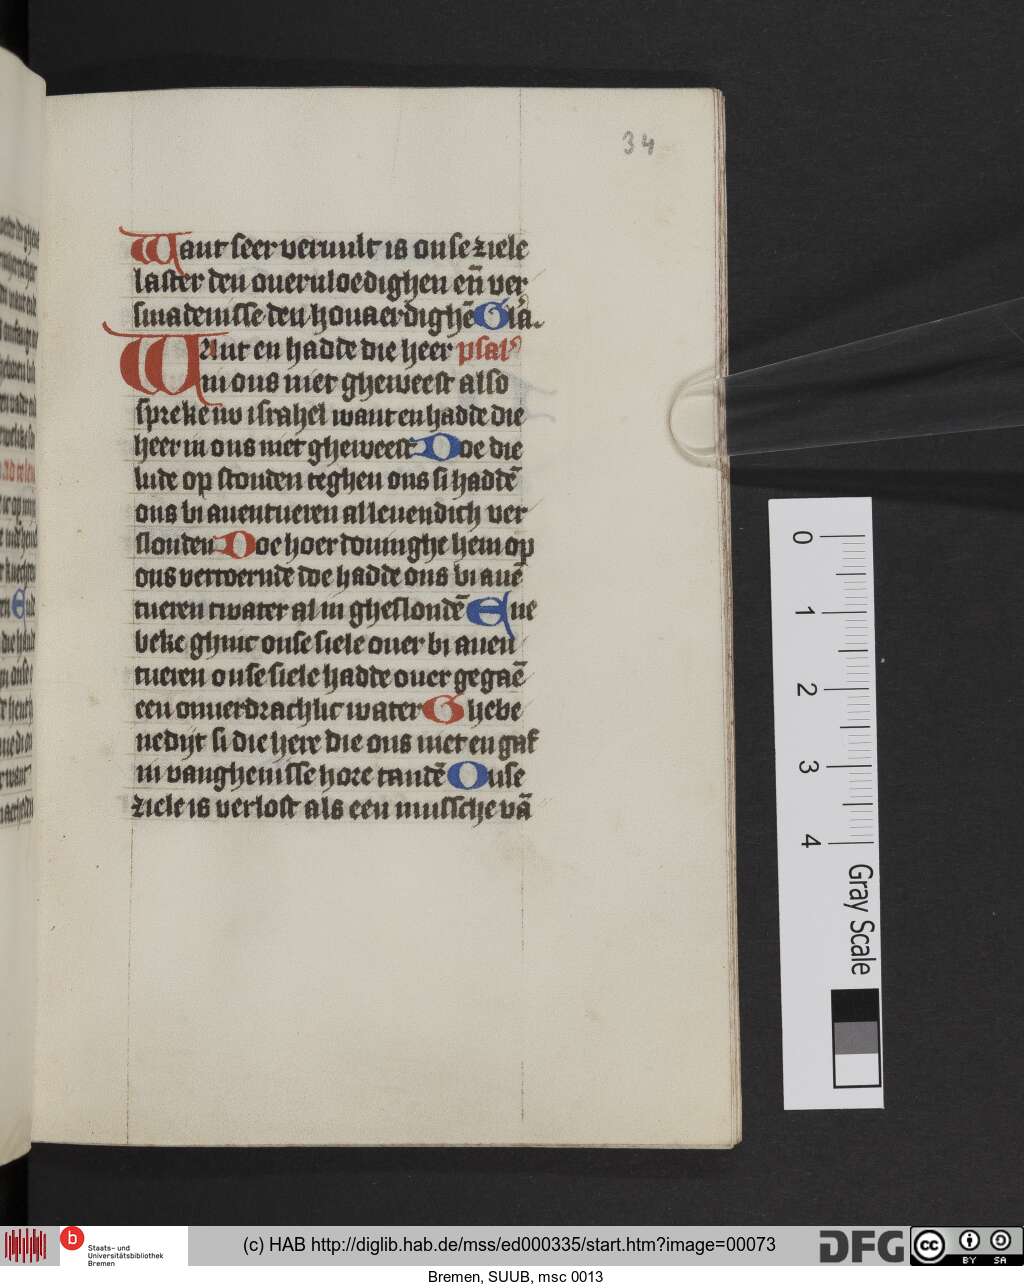 34
Want seer veruult is onse ziele
laster den oueruloedighen en̄ ver
smadenisse den houaerdighē Gl'a.
WAnt en hadde die heer psal'
in ons niet gheweest also
spreke nv israhel want en hadde die
heer in ons niet gheweest Doe die
lude op stonden teghen ons si haddē
ons bi auentueren al leuendich ver
slonden Doe hoer toninghe hem op
ons vertoernde doe hadde ons bi auē
tueren twater al in gheslondē Ene
beke ghinc onse siele ouer bi auen
tueren onse siele hadde ouer gegaē
een onuerdrachlic water Ghebe
nedijt si die here die ons niet en gaf
in vanghenisse hore tandē Onse
ziele is verlost als een mussche vā
0
1
2
3
4
Gray Scale
b
Staats- und
Universitätsbibliothek
Bremen
(c) HAB http://diglib.hab.de/mss/ed000335/start.htm?image=00073
DFG
cc
BY SA
Bremen, SUUB, msc 0013